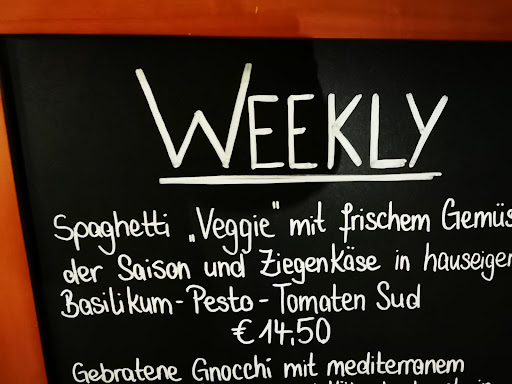 WEEKLY
Spaghetti „Veggie" mit frischem Gemüs
der Saison und Ziegenkäse in hauseigen
Basilikum-Pesto-Tomaten Sud
€ 14,50
Gebratene Gnocchi mit mediterranem